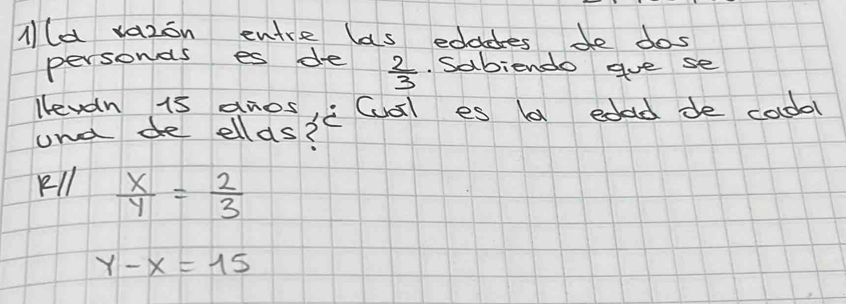 1) La razón entre las edades de dos
personas es de 2/3. Sabiendo que se
llevan 15 años, ¿Cuál es la edad de cada
una de ellas?
R// X/Y = 2/3
Y - X = 15